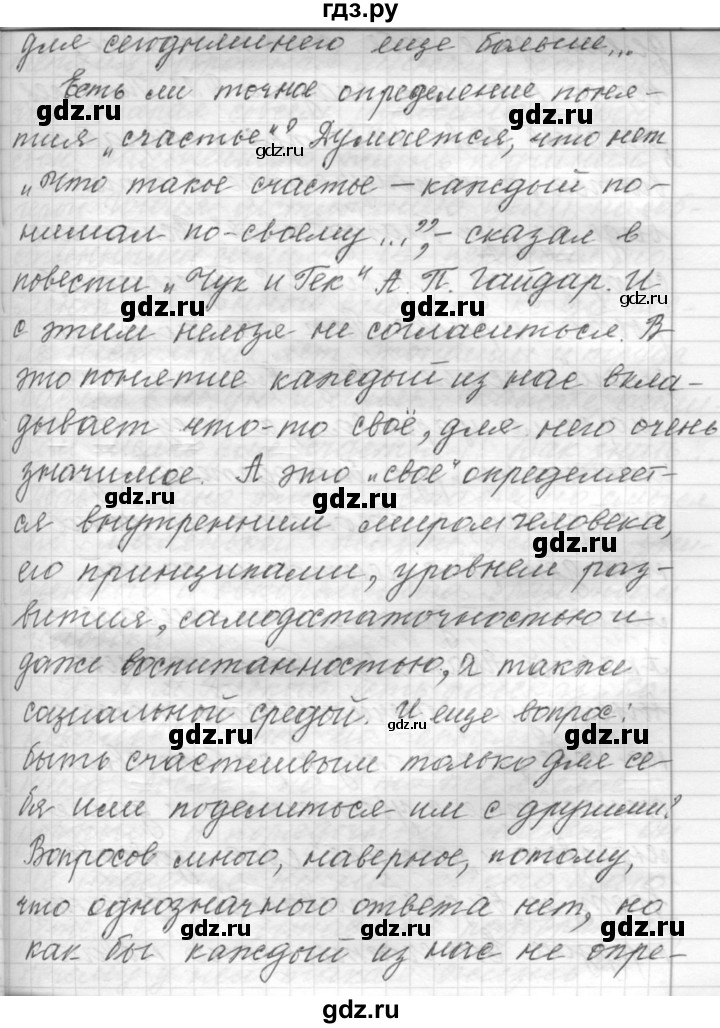 гдз.ру
для сегодняшнего еще больше...
Есть ли точное определение поня-
gdz.ru gdz.ru
тия „счастье“? Думается, что нет
gdz.ru
„Что такое счастье – каждый по-
нимал по-своему...”, – сказал в
повести „Чук и Гек“ А. П. Гайдар. И
gdz.ru gdz.ru gdz.ru
с этим нельзя не согласиться. В
это понятие каждый из нас вкла-
дывает что-то своё, для него очень
значимое. А это „свое“ определяет-
gdz.ru gdz.ru
ся внутренним миром человека,
gdz.ru
его принципами, уровнем раз-
вития, самодостаточностью и
даже воспитанностью, а также
социальной средой. И еще вопрос:
gdz.ru gdz.ru gdz.ru
быть счастливым только для се-
бя или поделиться им с другими?
gdz.ru
Вопросов много, наверное, потому,
что однозначного ответа нет, но
gdz.ru gdz.ru gdz.ru
как бы каждый из нас не опре-
gdz.ru